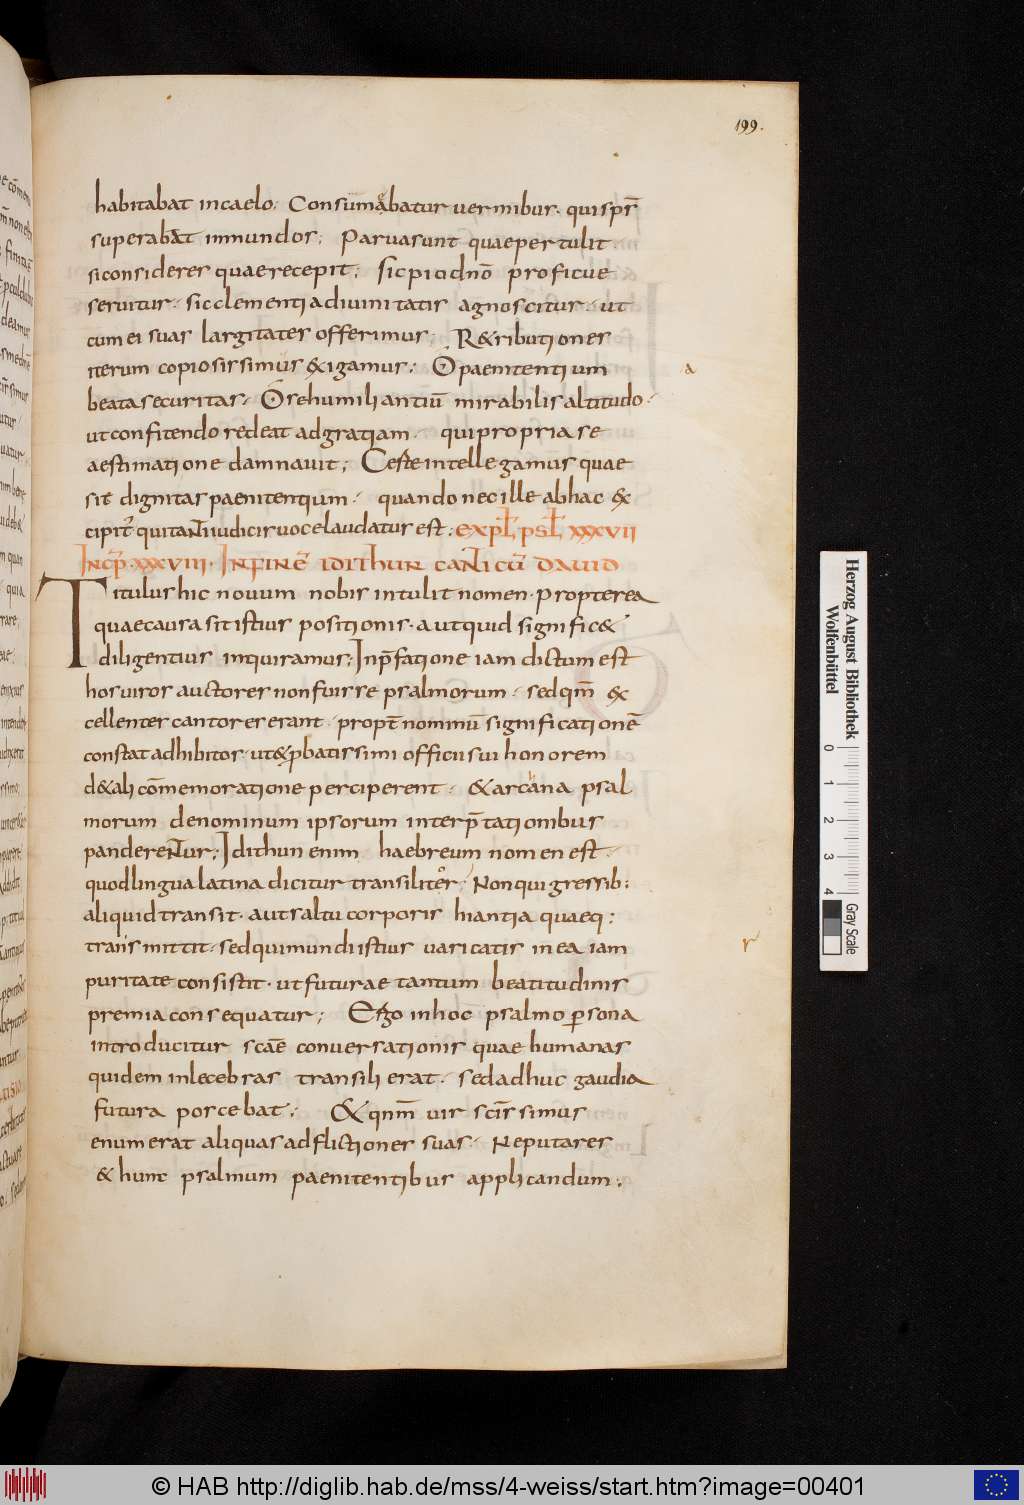 199.
habitabat incaelo; Consumabatur uermibus. quisps̄
superabat inmundos; Paruasunt quaepertulit
siconsideres quaerecepit; sicpiodnō proficue
seruitur. sicclementiadiuinitatis agnoscitur. ut
cum ei suas largitates offerimus; R&ributiones
iterum copiosissimus exigamus; O paenitentium
a
beatasecuritas. O sehumiliantiū mirabilisaltitudo.
utconfitendo redeat adgratiam. quipropriase
aestimatione damnauit; Certe intellegamus quae
sit dignitas paenitentium. quando nec ille abhac ex
cipit̄ quitanti iudicis uocelaudatur est; expl̄ psl̄ xxxvii
Incp̄. xxxviii. In finē idithun canticū dauid
Titulus hic nouum nobis intulit nomen. propterea
quaecausa sit istius positionis. aut quid signific&
diligentius inquiramus; Inp̄fatione iam dictum est
hos uiros auctores nonfuisse psalmorum. sedqm̄ ex
cellenter cantores erant. propt̄ nominū significationē
constat adhibitos. ut&ꝓbatissimi officiisui honorem
d&ali cōmemoratione perciperent. &arcana psal
morum denominum ipsorum interp̄tationibus
panderentur; Idithun enim haebreum nomen est.
quodlingualatina dicitur transilitor. Non qui gressib;
aliquid transit. aut saltu corporis hiantia quaeq;
transmittit. sed quimundi istius uaricatis in ea iam
r
puritate consistit. ut futurae tantum beatitudinis
premia consequatur; Ergo inhoc psalmo ꝑsona
introducitur scāe conuersationis quae humanas
quidem inlecebras transilierat. sedadhuc gaudia
futura poscebat; &qnm̄ uir scīssimus
enumerat aliquas adflictiones suas. Neputares
& hunc psalmum paenitentibus applicandum;
Herzog August Bibliothek
Wolfenbüttel
0 1 2 3 4
Gray Scale
© HAB http://diglib.hab.de/mss/4-weiss/start.htm?image=00401